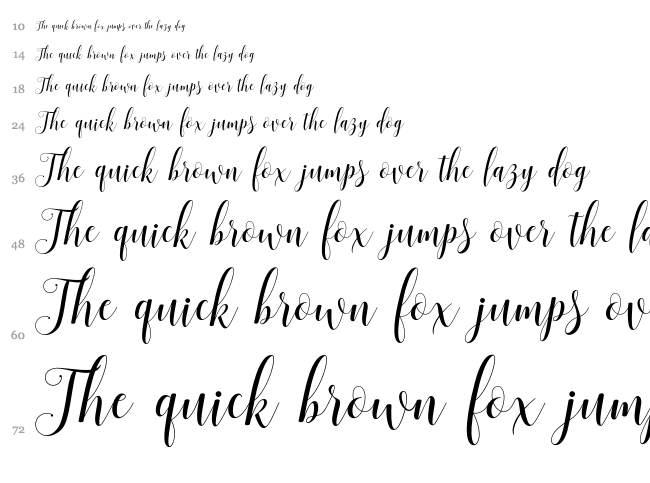 10 The quick brown fox jumps over the lazy dog
14 The quick brown fox jumps over the lazy dog
18 The quick brown fox jumps over the lazy dog
24 The quick brown fox jumps over the lazy dog
36 The quick brown fox jumps over the lazy dog
48 The quick brown fox jumps over the la
60 The quick brown fox jumps ov
72 The quick brown fox jum